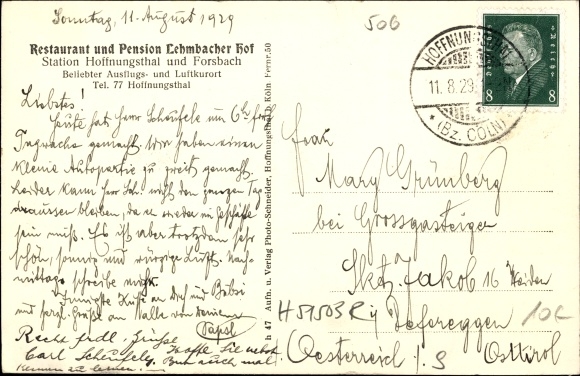 Sonntag, 11. August 1929
506
Restaurant und Pension Lehmbacher Hof
Station Hoffnungsthal und Forsbach
Beliebter Ausflugs- und Luftkurort
Tel. 77 Hoffnungsthal
HOFFNUNGSTHAL
11.8.29.
* (Bz. CÖLN) *
Deutsches Reich
8 8
Liebstes!
Heute hat Herr Schäufele um 6h früh
Tagwache gemacht. Wir haben einen
kleine Autopartie zu zweit gemacht.
Leider kann Herr Sch. nicht den ganzen Tag
draussen bleiben, da er wieder im Geschäfte
sein muß. Es ist aber trotzdem sehr
schön, sonnig und würzige Luft. Nach-
mittags schreibe mehr.
Innigste Küße an dich und Bubsi
und herzl. Grüße an Alle von deinem
Papsl
Recht frdl. Grüße
Carl Schäufele. Hoffe Sie nebst
Bubi auch mal
kennen zu lernen.
h 47 Aufn. u. Verlag Photo-Schneider, Hoffnungsthal b. Köln Fernr. 50
Frau
Mary Grünberg
bei Grossgasteiger
Skt. Jakob 16 Weiden
H 51503 R ij
Defereggen
10€
Oesterreich i. S Osttirol